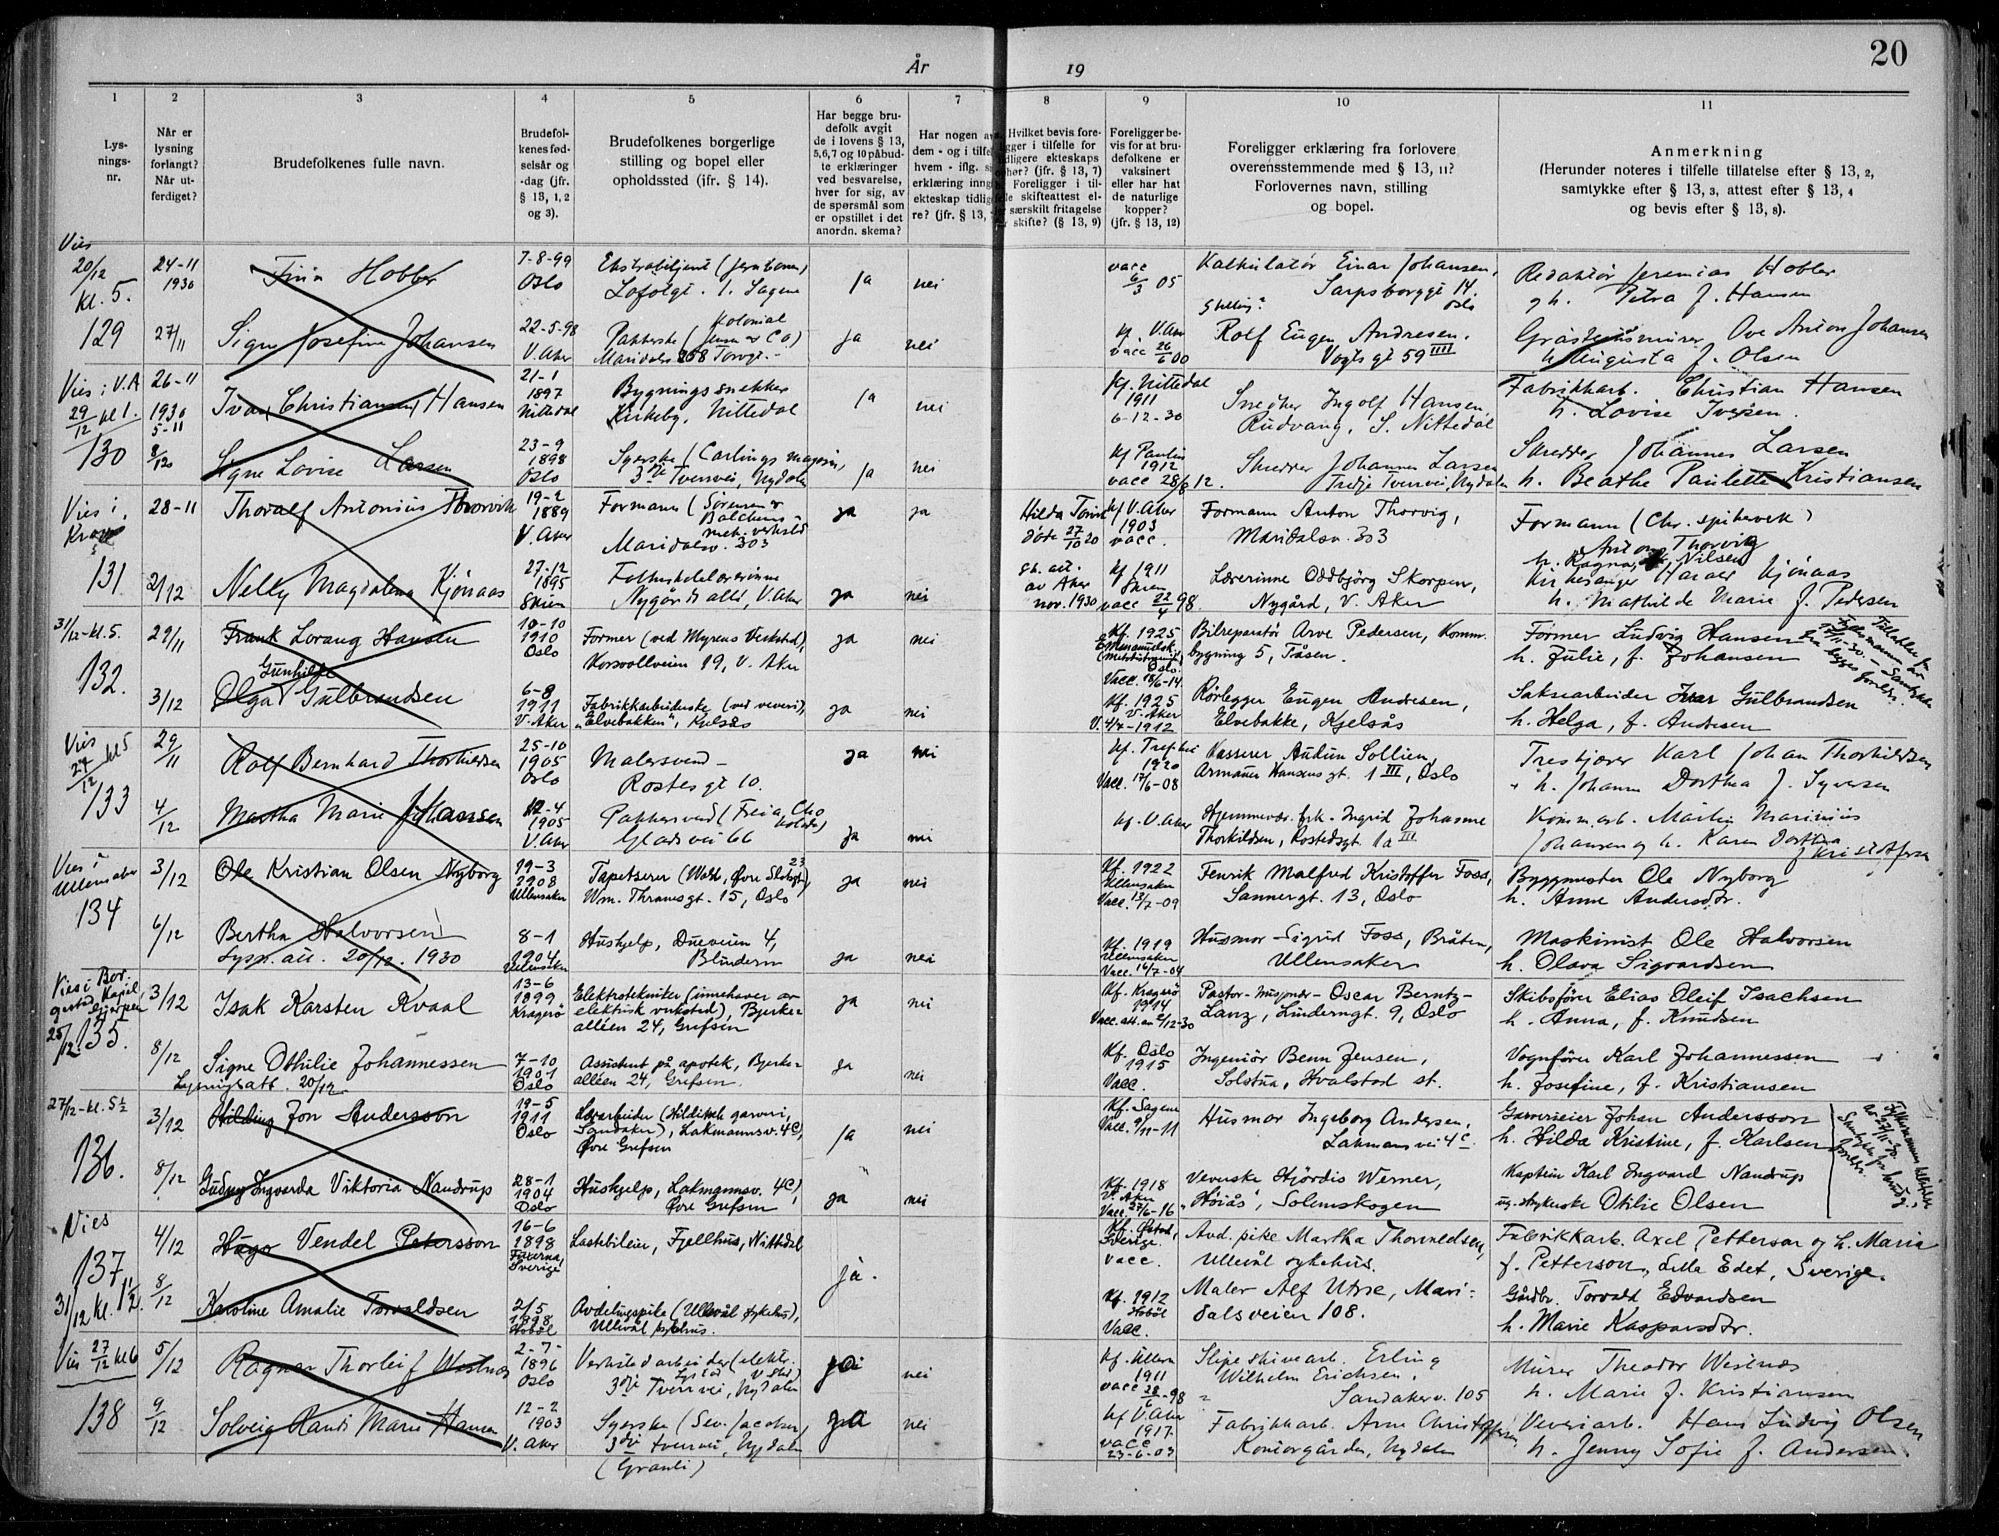 20
År 19
1 2 3 4 5 6 7 8 9 10 11
Lys-
nings-
nr.
Når er
lysning
forlangt?
Når ut-
ferdiget?
Brudefolkenes fulle navn.
Brudefol-
kenes fød-
selsår og
-dag (jfr.
§ 13, 1, 2
og 3).
Brudefolkenes borgerlige
stilling og bopel eller
opholdssted (ifr. § 14).
Har begge bru-
defolk avgit
de i lovens § 13,
5,6,7 og 10 påbud-
te erklæringer
ved besvarelse,
hver for sig, av
de spørsmål som
er opstillet i det
anordn. skema?
Har nogen av
dem - og i tilfel
hvem - iflg. s
erklæring inng
ekteskap tidlig
re? (jfr. § 13,
Hvilket bevis fore-
ligger i tilfelle for
tidligere ekteskaps
ophør? (jfr. § 13, 7)
Foreligger i til-
felle skifteattest el-
særskilt fritagelse
skifte? (§ 13, 9)
Foreligger be-
vis for at bru-
defolkene er
vaksinert
eller har hat
de naturlige
kopper?
(jfr. § 13, 12)
Foreligger erklæring fra forlovere
overensstemmende med § 13, 11?
Forlovernes navn, stilling
og bopel.
Anmerkning
(Herunder noteres i tilfelle tillatelse efter § 13, 2,
samtykke efter § 13, 3, attest efter § 13, 4
og bevis efter § 13, 8).
Vies
20/12
kl. 5.
129
24-11
1930
Hobber
7-8-99
Oslo
Lofotgt. 1. Sagene
ja
nei
vacc
6/3 05
Kalkulatør Einar Johansen,
Sarpsborggt 14.
Oslo
Redaktør Jeremias Hobber
og h. Petra f. Hansen
27/11
Signe Josefine Johansen
22-5-98
V. Aker
Pakkerske (Kolonial
Maridalsv. 258
ja
nei
kf. V. Aker
vacc 26/6 00
Rolf Eugen Andresen.
Vogts gt 59 IIII
Gråsteinsmurer Ove Anton Johansen
h. Augusta f. Olsen
Vies i V.A
29/12 kl 1.
130
26-11
1930
5-11
Ivar Christiansen Hansen
21-1
1897
Nittedal
Bygningssnekker
Kirkeby, Nittedal
ja
nei
kf. Nittedal
1911
6-12-30
Snedker Ingolf Hansen,
Rudvang, S. Nittedal
Fabrikkarb. Christian Hansen
h. Lovise Iversen.
8/12
Signe Lovise Larsen
23-9
1898
Oslo
Syerske (Carlings magasin,
3dje Tverrvei, Nydalen
ja
nei
kf Paulus
1912
vacc 28/8 12.
Skredder Johannes Larsen
Tredje Tverrvei, Nydalen
Skredder Johannes Larsen
h. Beathe Paulette Kristiansen
Vies i
131
28-11
Thoralf Antonius Thorvik
19-2
1889
V. Aker
Formann (Sørensen &
Balchens
mek. verksted
Maridalsv. 303
ja
ja
Hilda
døde 27/10 20
kf V. Aker
1903
vacc.
Formann Anton Thorvig,
Maridalsv. 303
Formann (Chr. spikerverk)
Anton Thorvig
h. Ragna, Nilsen
2/12
Nelly Magdalena Kjønaas
27-12
1895
Skien
Folkeskolelærerinne
Nygårds allé, V. Aker
ja
nei
sk. att.
av Aker
nov. 1930
kf 1911
Skien
vacc 22/4 98
Lærerinne Oddbjørg Skorpen,
Nygård, V. Aker
Kirkesanger Harald Kjønaas
h. Mathilde Marie f. Pedersen
31/12-kl. 5.
132.
29/11
Frank Lorang Hansen
10-10
1910
Oslo
Former (ved Myrens Verksted),
Korsvollveien 19, V. Aker
ja
nei
Kf. 1925
Oslo.
Vacc. 18/6-14.
Bilreparatør Arve Pedersen, Komm.
bygning 5, Tåsen.
Former Ludvig Hansen
h. Julie, f. Johansen
3/12
Gunhilde
Olga Gulbrandsen
6-8
1911
V. Aker
Fabrikkarbeiderske (ved veveri),
„Elvebakken", Kjelsås
ja
nei
Kf. 1925
V. Aker
V. 4/7-1912
Rørlegger Eugen Andresen,
Elvebakke, Kjelsås
Saksearbeider Ivar Gulbrandsen
h. Helga, f. Andresen
Vies
27/12 kl 5
133
29/11
Rolf Bernhard Thorkildsen
25-10
1905
Oslo
Malersvend -
Rostedsgt 10.
ja
nei
1920
Vacc. 17/6-08
Kasserer Audun Sollien
Armauer Hansensgt. 1 III, Oslo
Karl Johan Thorkildsen
h. Johanne Dorthea f. Syversen
4/12
Martha Marie Johansen
12-4
1905
V. Aker
Pakkerske (Freia, Cho
kolade)
Gladsvei 66
ja
nei
kf. V. Aker
Hjemmevær. frk. Ingrid Johanne
Thorkildsen, Rostedsgt. 1a III
Komm. arb. Martin Marinius
Johansen og h. Karen Dorthea
f Kristofersen
Vies i
Ullensaker
134
3/12
Ole Kristian Olsen Nyborg
19-3
1908
Ullensaker
Tapetserer (Wald, Øvre Slotsgt. 23)
Wm. Thranesgt. 15, Oslo
ja
nei
Kf. 1922
Ullensaker
Vacc. 13/7-09
Fenrik Malfred Kristoffer Foss,
Sannergt. 13, Oslo
Byggmester Ole Nyborg
h. Anne Andersdtr.
6/12
Bertha Halvorsen
Lysn. att. 20/12. 1930
8-1
1904
Ullensaker
Hushjelp, Dueveien 4,
Blindern
ja
nei
Kf. 1919
Ullensaker
Vacc. 16/7-04
Husmor Sigrid Foss, Bråten,
Ullensaker
Maskinist Ole Halvorsen
h. Olava Sigvardsen
Vies i Bor-
gestad Kapel
25/12.
135.
3/12
Isak Karsten Kvaal
13-6
1899
Kragerø
Elektrotekniker (innehaver av
elektrisk verksted), Bjerke-
alléen 24, Grefsen
ja
nei
Kf. Kragerø
1914
Vacc. att. av 2/12-30
Pastor - Oscar Berntz-
Lanz, Lindernsgt. 9, Oslo
Skibsfører Elias Oleif Isachsen
h. Anna, f. Knudsen
8/12
Signe Othilie Johannessen
Lysningsatt. 20/12
7-10
1901
Oslo
Assistent på apotek, Bjerke-
alléen 24, Grefsen.
ja
nei
Kf. Oslo
1915
Vacc.
Ingeniør Benn Jensen,
Solstua, Hvalstad st.
Vognfører Karl Johannessen
h. Josefine, f. Kristiansen
27/12-kl. 5½
136.
3/12
Hilding Jon Andersson
19-5
1911
Oslo
Lærarbeider (Hilditsch garveri,
Sandaker), Lakmannsv. 4c,
Øvre Grefsen
ja
nei
Kf. Sagene
Vacc. 9/11-11
Husmor Ingeborg Andersen,
Lakmansvei 4c
Garveieier Johan Andersson
h. Hilda Kristine, f. Karlsen
8/12
Gudny Ingvarda Viktoria Nandrup
28-1
1904
Oslo
Hushjelp, Lakmannsv. 4c,
Øvre Grefsen
ja
nei
Kf. 1918
V. Aker
Vacc. 27/6-16
Veverske Hjørdis Werner,
„Høiås", Solemskogen
Kaptein Karl Ingvard Nandrup
ug. strykerske Otilie Olsen
Vies
137
31/12 kl. 1½.
4/12
Hugo Vendel Petersson
16-6
1898
Sverige
Lastebileier, Fjellhus, Nittedal
ja.
Sverige.
vacc.
Avd. pike Martha Thorvaldsen,
Ullevål sykehus.
Fabrikkarb. Axel Petterson og h. Maria
f. Petterson, Lilla Edet, Sverige.
8/12
Karoline Amalie Torvaldsen
2/5
1898
Hobøl
Avdelingspike (Ullevål sykehus),
Ullevål sykehus.
Kf. 1912
Hobøl
Vacc.
Maler Alf Utne, Mari-
dalsveien 108.
Gårdbr. Torvald Edvardsen
h. Marie Kaspersdtr.
Vies 27/12 kl 6
138
5/12
Ragnar Thorleif Westnes
2-7-
1896
Oslo
Verkstedarbeider (elektr.
3dje Tverrvei, Nydalen
ja
nei
Kf. Ullern
1911
vacc 28/6-98
Slipeskivearb. Erling
Wilhelm Erichsen,
Sandakerv. 105
Murer Theodor Westnæs
h. Marie f. Kristiansen
9/12
Solveig Randi Marie Hansen
12-2
1903
V. Aker
Syerske (Sev. Jacobsen,
3dje tverrvei, Nydalen
(Granli)
ja
nei
kf V. Aker
1917.
vacc
23-6-03
Fabrikkarb. Arne Christoffersen,
Kontorgården, Nydalen
Veveriarb. Hans Ludvig Olsen
h. Jenny Sofie f. Andersen